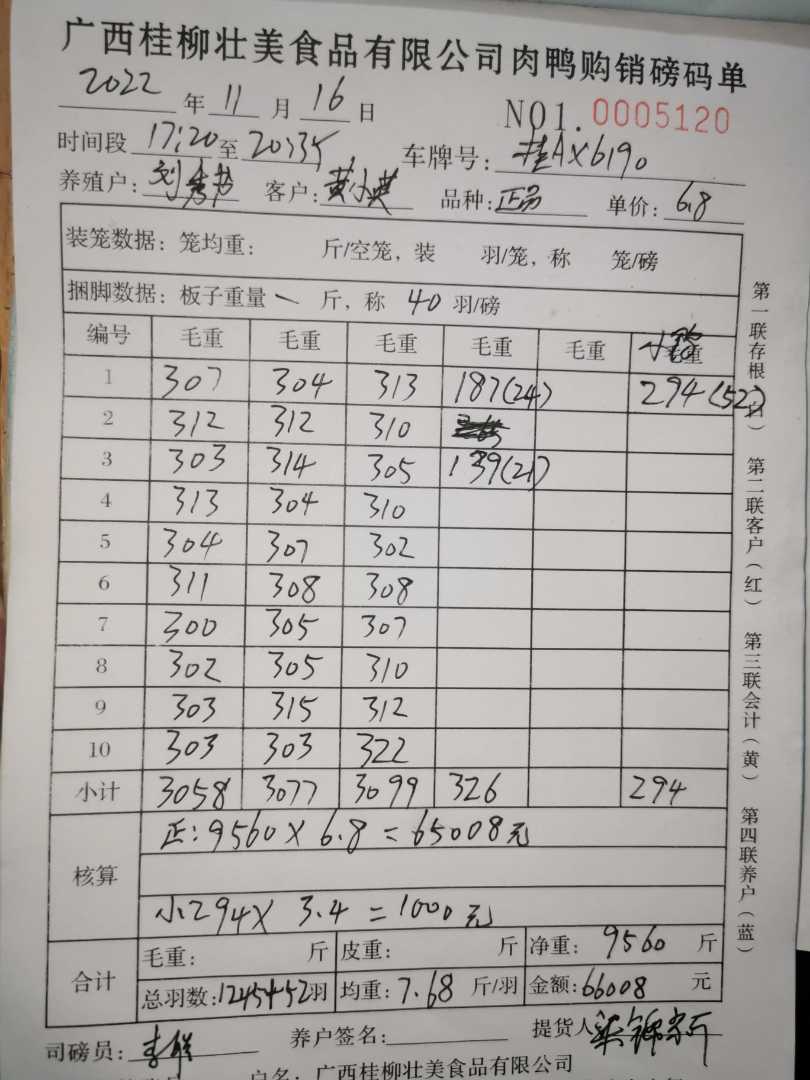 广西桂柳壮美食品有限公司肉鸭购销磅码单
2022 年 11 月 16 日 NO1. 0005120
时间段 17:20 至 20:35 车牌号: 桂AX6190
养殖户: 刘 客户: 黄小英 品种: 正品 单价: 6.8
装笼数据: 笼均重: 斤/空笼, 装 羽/笼, 称 笼/磅
捆脚数据: 板子重量 一 斤, 称 40 羽/磅
编号 毛重 毛重 毛重 毛重 毛重 毛重
1 307 304 313 187(24) 294(52)
2 312 312 310
3 303 314 305 139(21)
4 313 304 310
5 304 307 302
6 311 308 308
7 300 305 307
8 302 305 310
9 303 315 312
10 303 303 322
小计 3058 3077 3099 326 294
核算
正: 9560 X 6.8 = 65008元
小294X 3.4 = 1000元
合计
毛重: 斤 皮重: 斤 净重: 9560 斤
总羽数: 1245+52羽 均重: 7.68 斤/羽 金额: 66008 元
司磅员: 养户签名: 提货人
户名: 广西桂柳壮美食品有限公司
第一联存根(白)
第二联客户(红)
第三联会计(黄)
第四联养户(蓝)